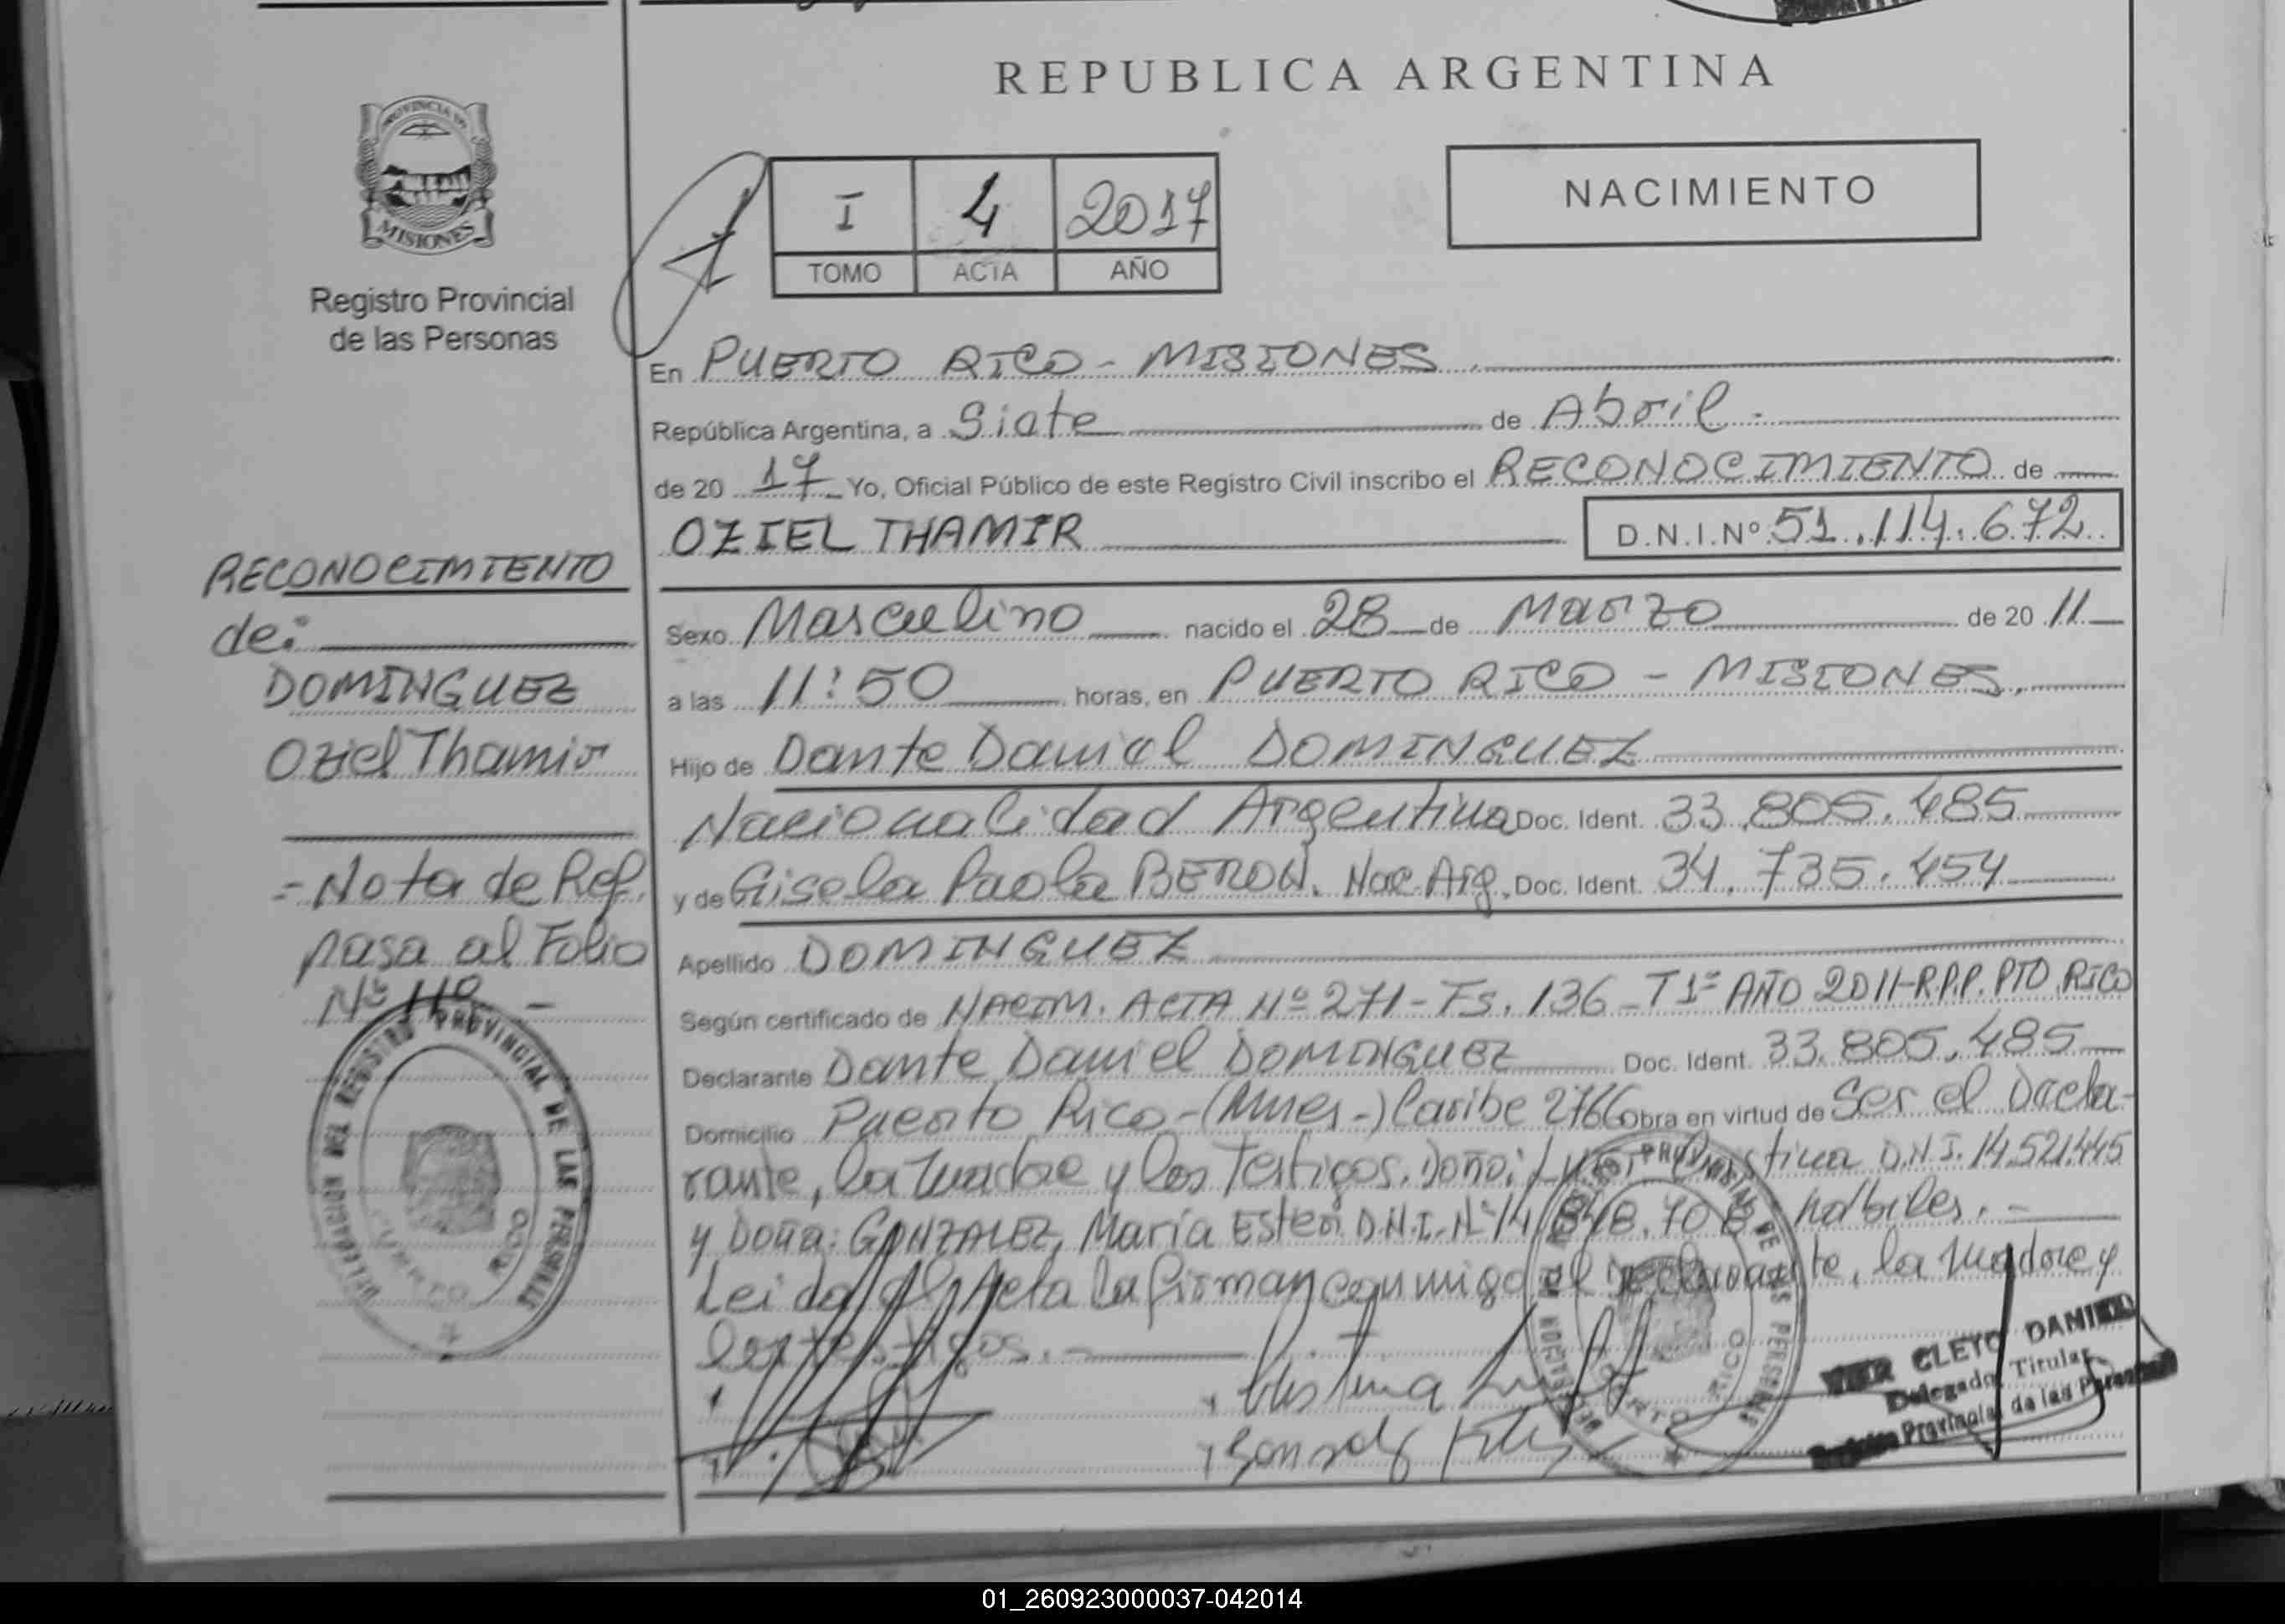 REPUBLICA ARGENTINA
PROVINCIA DE
MISIONES
Registro Provincial
de las Personas
I 4 2017
TOMO ACTA AÑO
NACIMIENTO
En PUERTO RICO - MISIONES
República Argentina, a Siete de Abril.-
de 20 17 Yo, Oficial Público de este Registro Civil inscribo el RECONOCIMIENTO de
OZIEL THAMIR D.N.I.Nº 51.114.672
Sexo Masculino nacido el 28 de Marzo de 20 11
a las 11:50 horas, en PUERTO RICO - MISIONES,
Hijo de Dante Daniel DOMINGUEZ
Nacionalidad Argentina Doc. Ident. 33.805.485
y de Gisela Paola BERON. Nac. Arg. Doc. Ident. 34.735.454
Apellido DOMINGUEZ
Según certificado de NACIM. ACTA Nº 271 - Fs. 136 - T1º AÑO 2011-R.P.P. PTO RICO
Declarante Dante Daniel DOMINGUEZ Doc. Ident. 33.805.485
Domicilio Puerto Rico - (Mnes.-) Caribe 2766 Obra en virtud de Ser el Decla-
rante, la madre y los Testigos. Doña: D.N.I. 14.521.445
y Doña: GONZALEZ, María Ester D.N.I. Nº 14 hábiles.-
Leida el Acta la firman conmigo el Declarante, la madre y
los testigos.-
RECONOCIMIENTO
de:
DOMINGUEZ
Oziel Thamir
- Nota de Ref.
pasa al Folio
Nº 110 -
DELEGACION DEL REGISTRO PROVINCIAL DE LAS PERSONAS
PUERTO RICO
DELEGACION DEL REGISTRO PROVINCIAL DE LAS PERSONAS
PUERTO RICO
CLETO DANIEL
Delegado Titular
Registro Provincial de las Personas
01_260923000037-042014